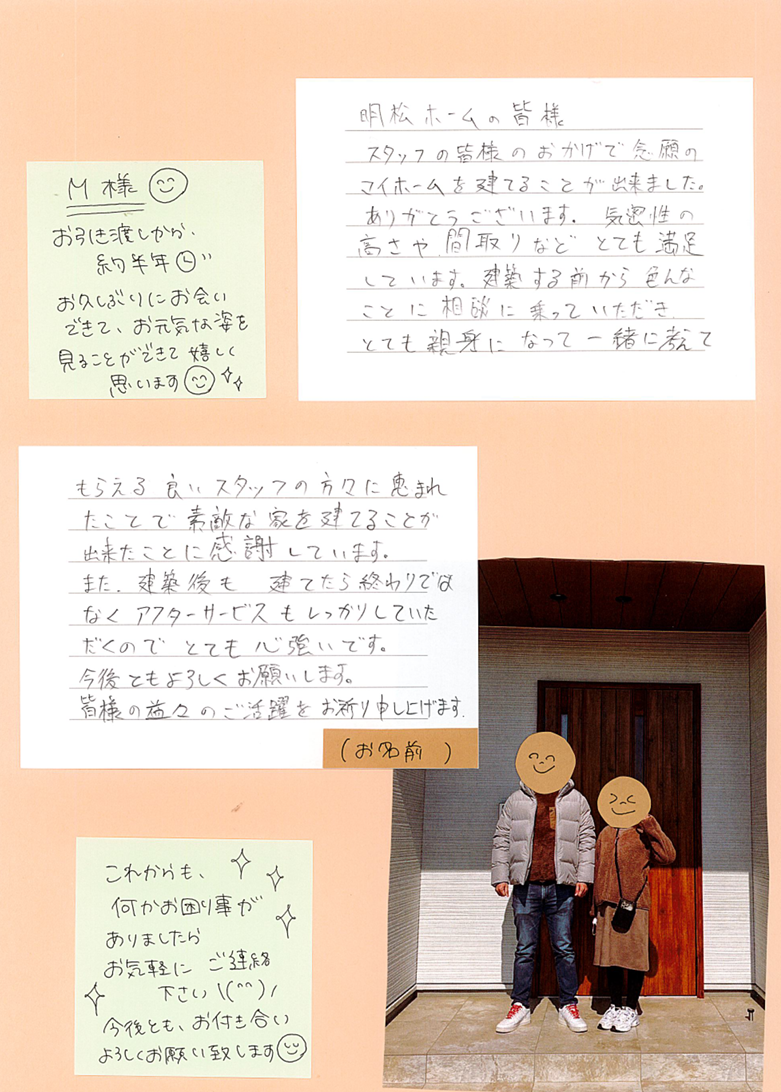 M様
お引き渡しから、
約半年
お久しぶりにお会い
できて、お元気な姿を
見ることができて嬉しく
思います
明松ホームの皆様
スタッフの皆様のおかげで念願の
マイホームを建てることが出来ました。
ありがとうございます。気密性の
高さや、間取りなどとても満足
しています。建築する前から色んな
ことに相談に乗っていただき、
とても親身になって一緒に考えて
もらえる良いスタッフの方々に恵まれ
たことで素敵な家を建てることが
出来たことに感謝しています。
また、建築後も建てたら終わりでは
なくアフターサービスもしっかりしていた
だくのでとても心強いです。
今後ともよろしくお願いします。
皆様の益々のご活躍をお祈り申し上げます。
(お名前 )
これからも、
何かお困り事が
ありましたら
お気軽にご連絡
下さい\(^^)/
今後とも、お付き合い
よろしくお願い致します